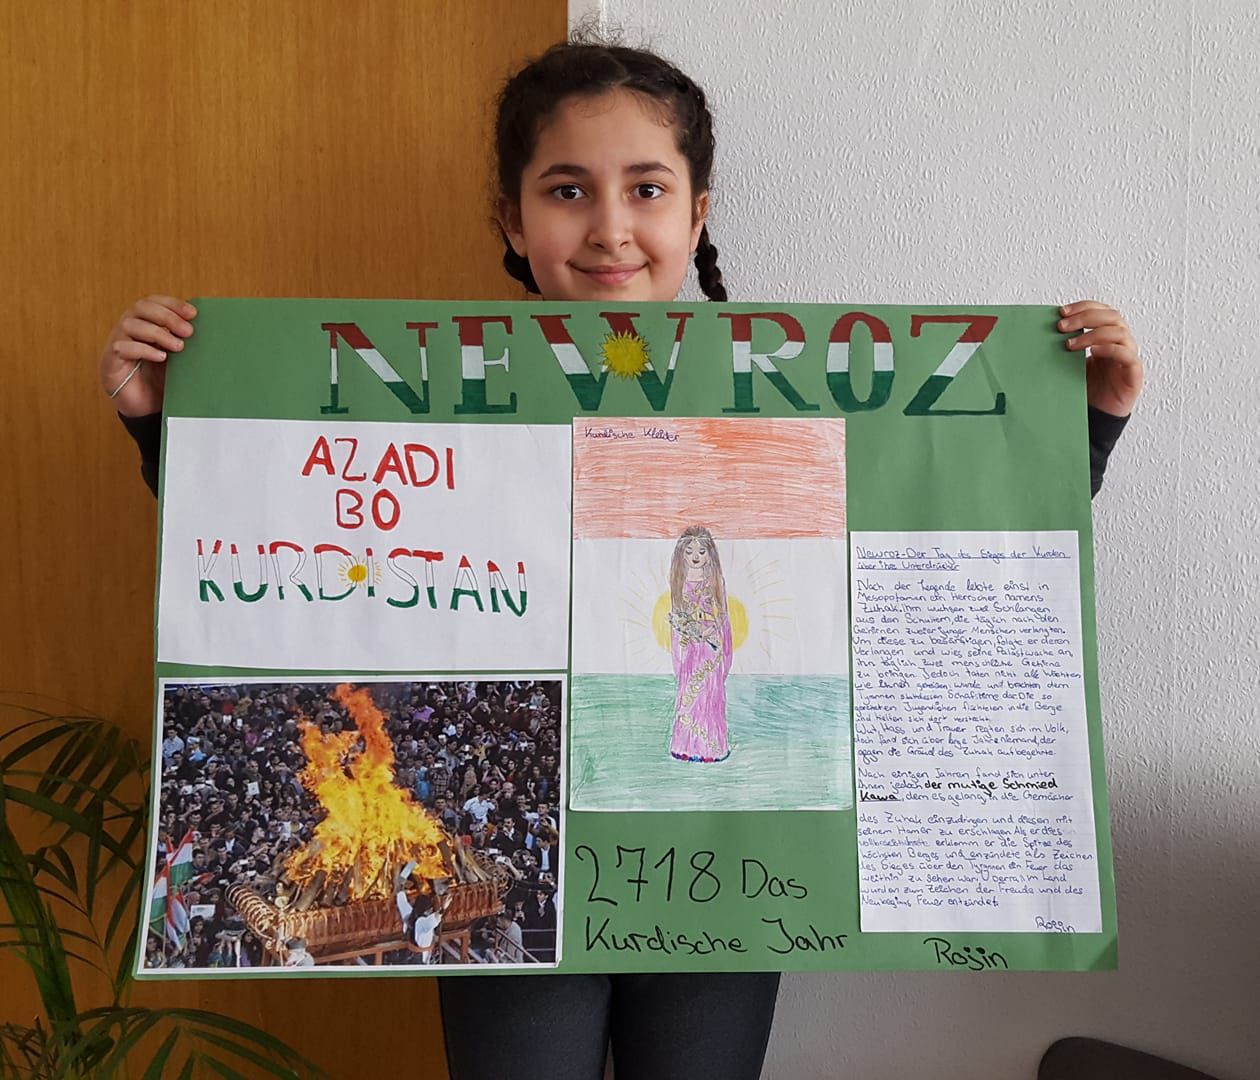 NEWROZ
AZADI
BO
KURDISTAN
Kurdische Kleider
2718 Das
Kurdische Jahr
Newroz-Der Tag des Sieges der Kurden
über ihre Unterdrücker
Nach der Legende lebte einst in
Mesopotamien ein Herrscher namens
Zuhak. Ihm wuchsen zwei Schlangen
aus den Schultern, die täglich nach den
Gehirnen zweier junger Menschen verlangten.
Um diese zu besänftigen, folgte er deren
Verlangen und wies seine Palastwache an,
ihn täglich zwei menschliche Gehirne
zu bringen. Jedoch taten nicht alle Wächter
wie ihnen geheißen wurde und brachten dem
Tyrannen stattdessen Schafshirne dar. Die so
geretteten Jugendlichen flüchteten in die Berge
und hielten sich dort versteckt.
Wut, Hass und Trauer regten sich im Volk,
doch fand sich über lange Jahre niemand, der
gegen die Gräuel des Zuhak aufbegehrte.
Nach einigen Jahren fand sich unter
ihnen jedoch der mutige Schmied
Kawa, dem es gelang, in die Gemächer
des Zuhak einzudringen und diesen mit
seinem Hamer zu erschlagen. Als er dies
vollbracht hatte erklomm er die Spitze des
höchsten Berges und entzündete als Zeichen
des Sieges über den Tyrannen ein Feuer das
weithin zu sehen war. Überall im Land
wurden zum Zeichen der Freude und des
Neubeginns Feuer entzündet.
Rojin
Rojin